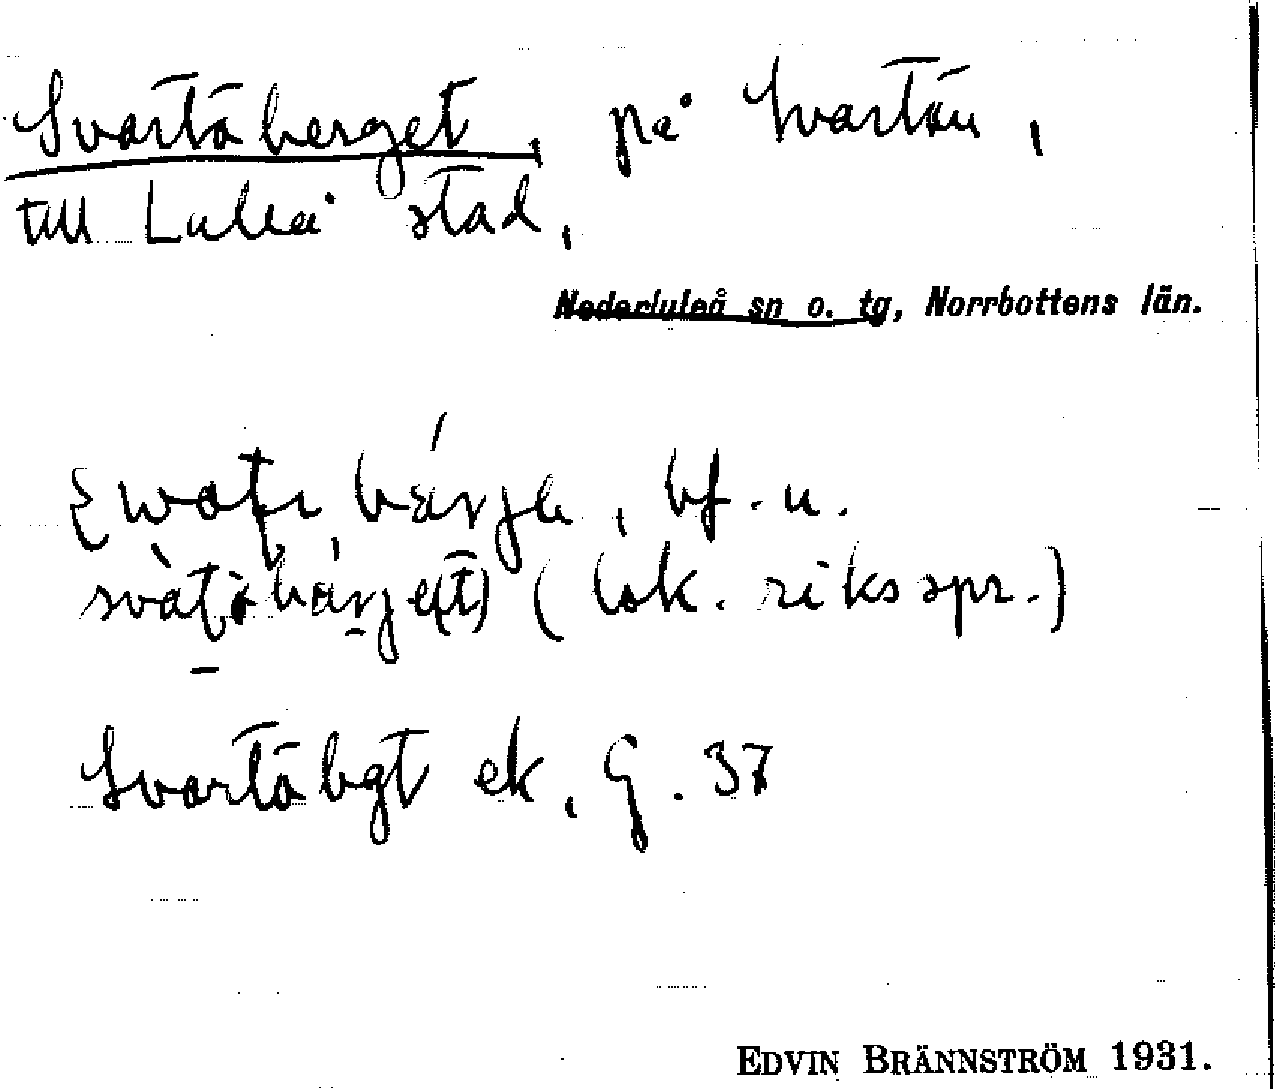 Svartöberget, på Svartön,
till Luleå stad,
Nederluleå sn o. tg, Norrbottens län.
bf. n.
(lok. riksspr.)
Svartöbgt ek. G. 37
EDVIN BRÄNNSTRÖM 1931.